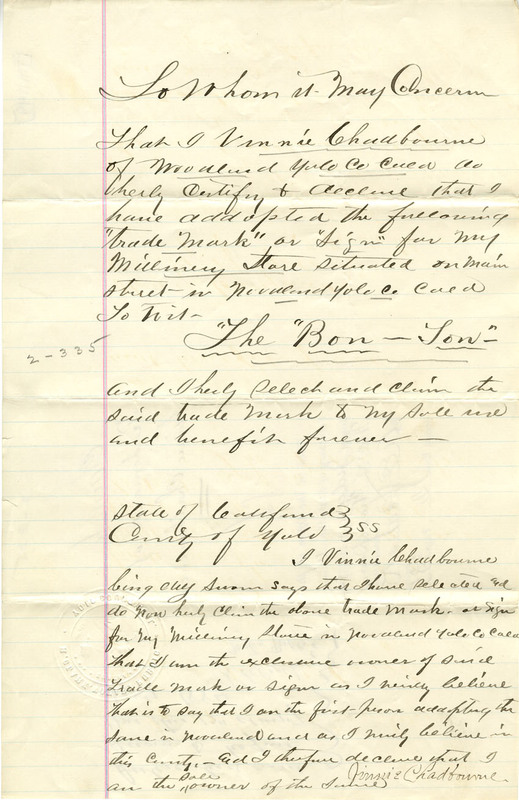 To Whom it May Concern
That I Vinnie Chadbourne
of Woodland Yolo Co Cala do
herby Certify & declare that I
have addopted the following
"trade Mark" or "Sign" for My
Millinery Store situated on Main
street in Woodland Yolo Co Cala
To Wit -
"The "Bon - Ton"
2-335
And I herby select and claim the
said trade Mark to My Sole use
and benefit forever -
State of California }
County of Yolo } SS
I Vinnie Chadbourne
being duly sworn says that I have selected and
do now herby claim the above trade Mark or Sign
for my Millinery Store in Woodland Yolo Co Cala
That I am the exclusive owner of said
trade Mark or Sign as I verily believe
that is to say that I am the first person addopting the
same in Woodland and as I verily believe in
this County - And I therfore declare that I
am the sole owner of the same
Vinnie Chadbourne